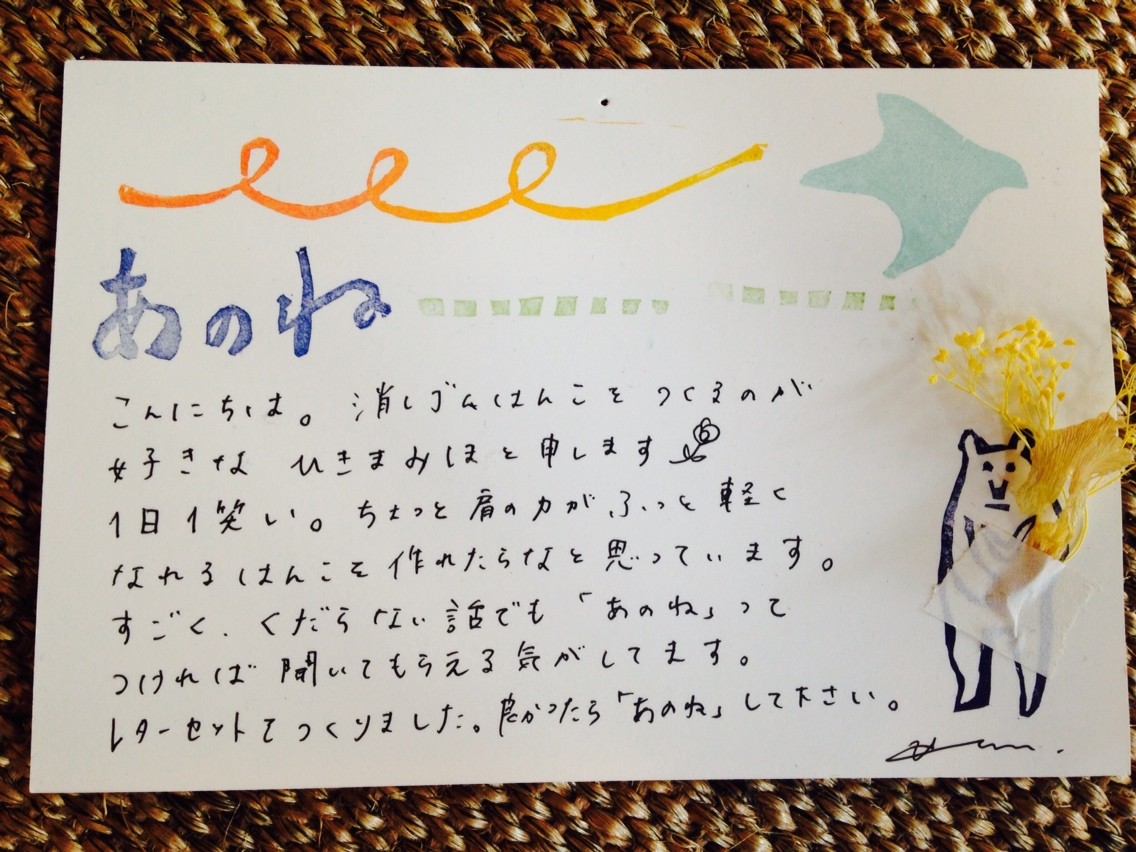 あのね
こんにちは。消しゴムはんこをつくるのが
好きな ひきまみほと申します
1日1笑い。ちょっと肩の力がふっと軽く
なれるはんこを作れたらなと思っています。
すごく、くだらない話でも「あのね」って
つければ聞いてもらえる気がしてます。
レターセットてつくりました。良かったら「あのね」して下さい。